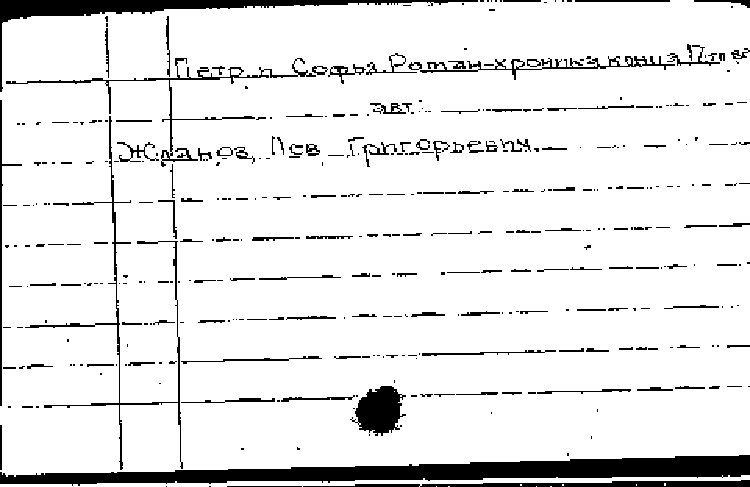 Петр и Софья. Роман-хроника конца 17го в
авт:
Жданов, Лев Григорьевич.